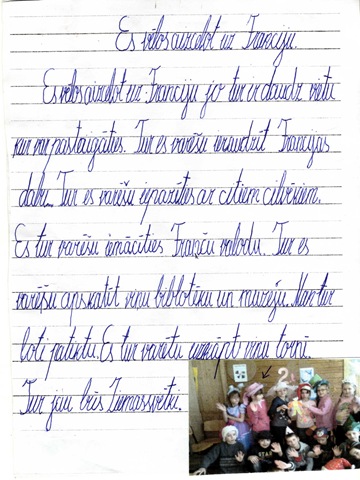 Es vēlos aizceļot uz Franciju.
Es vēlos aizceļot uz Franciju jo tur ir daudz vietu
kur var pastaigāties. Tur es varēšu ieraudzīt Francijas
dabu. Tur es varēšu iepazīties ar citiem cilvēkiem.
Es tur varēšu iemācīties Franču valodu. Tur es
varēšu apskatīt vinu bibloteku un muzeju. Man tur
ļoti patiktu. Es tur varētu uzkāpt vinu tornī.
Tur jau būs Ziemassvētki.
2